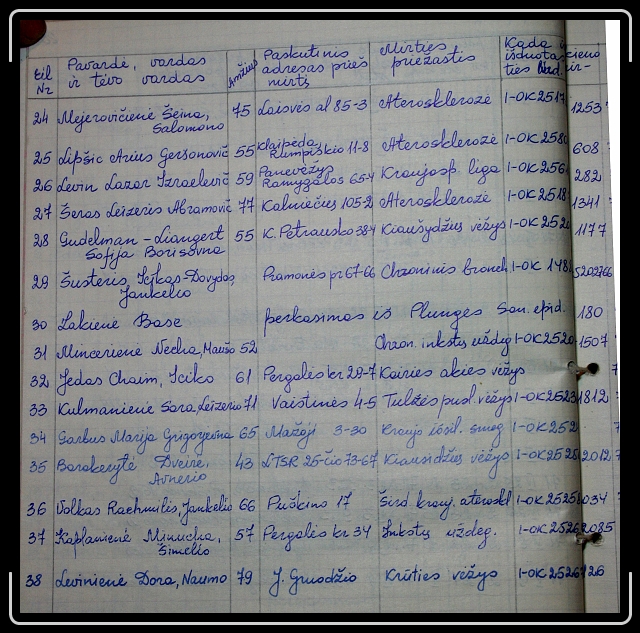 Eil Nr Pavardė, vardas ir tėvo vardas Amžius Paskutinis adresas prieš mirtį Mirties priežastis Kada išduotas
24 Mejerovičienė Šeina, Salomono 75 Laisvės al 85-3 Aterosklerozė 1-OK 2517 1253
25 Lipšic Arius Gersonovič 55 Klaipėda, Rumpiškio 11-8 Aterosklerozė 1-OK 2580 608
26 Levin Lazar Izraelevič 59 Panevėžys Ramygalos 65-4 Kraujosp. liga 1-OK 256 282
27 Šeras Leizeris Abramovič 77 Kalniečių 105-2 Aterosklerozė 1-OK 2518 1341
28 Gudelman-Liangert Sofija Borisovna 55 K. Petrausko 38-4 Kiaušydžių vėžys 1-OK 252 1177
29 Šusteris Ickas-Dovydas, Jankelio Pramonės pr 67-66 Chroninis bronch 1-OK 148 5202766
30 Lakienė Base perkasimas iš Plungės San. epid. 180
31 Mincerienė Necha, Maušo 52 Chron. inkstų uždeg 1-OK 2520 1507
32 Jedas Chaim, Iciko 61 Pergalės kr 29-7 Kairies akies vėžys
33 Kulmanienė Sara, Leizerio 71 Vaistinės 4-5 Tulžės pusl. vėžys 1-OK 2523 1812
34 Garbus Marija Grigorjevna 65 Mažoji 3-30 Kraujo išsil. smeg 1-OK 252
35 Dveirė, Avnerio 43 LTSR 25-čio 73-67 Kiausidžių vėžys 1-OK 252 2012
36 Volkas Rachmilis, Jankelio 66 Puškino 17 Šird krauj. ateroskl 1-OK 2525 034
37 Kaplanienė Minucha, Šimelio 57 Pergalės kr 34 Inkstų uždeg. 1-OK 2526 2085
38 Levinienė Dora, Naumo 79 J. Gruodžio Krūties vėžys 1-OK 2526 126